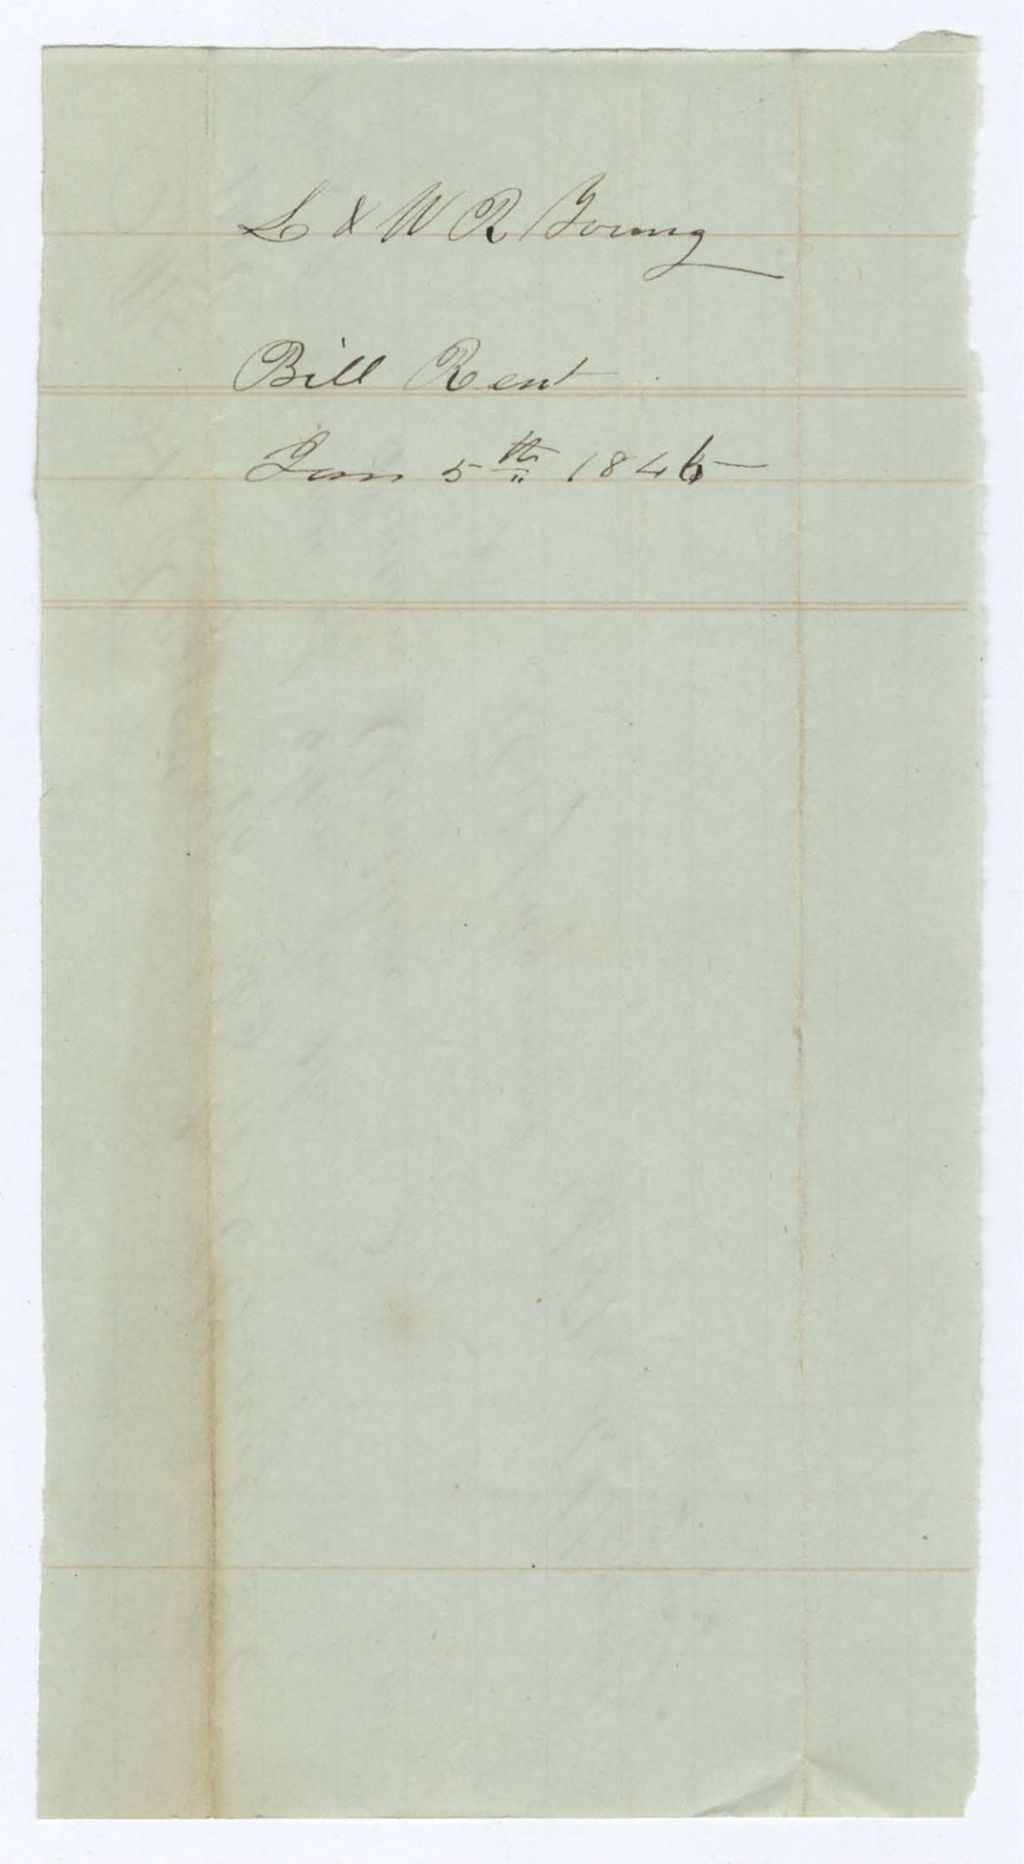 L & W R Young
Bill Rent
Jan 5th 1846